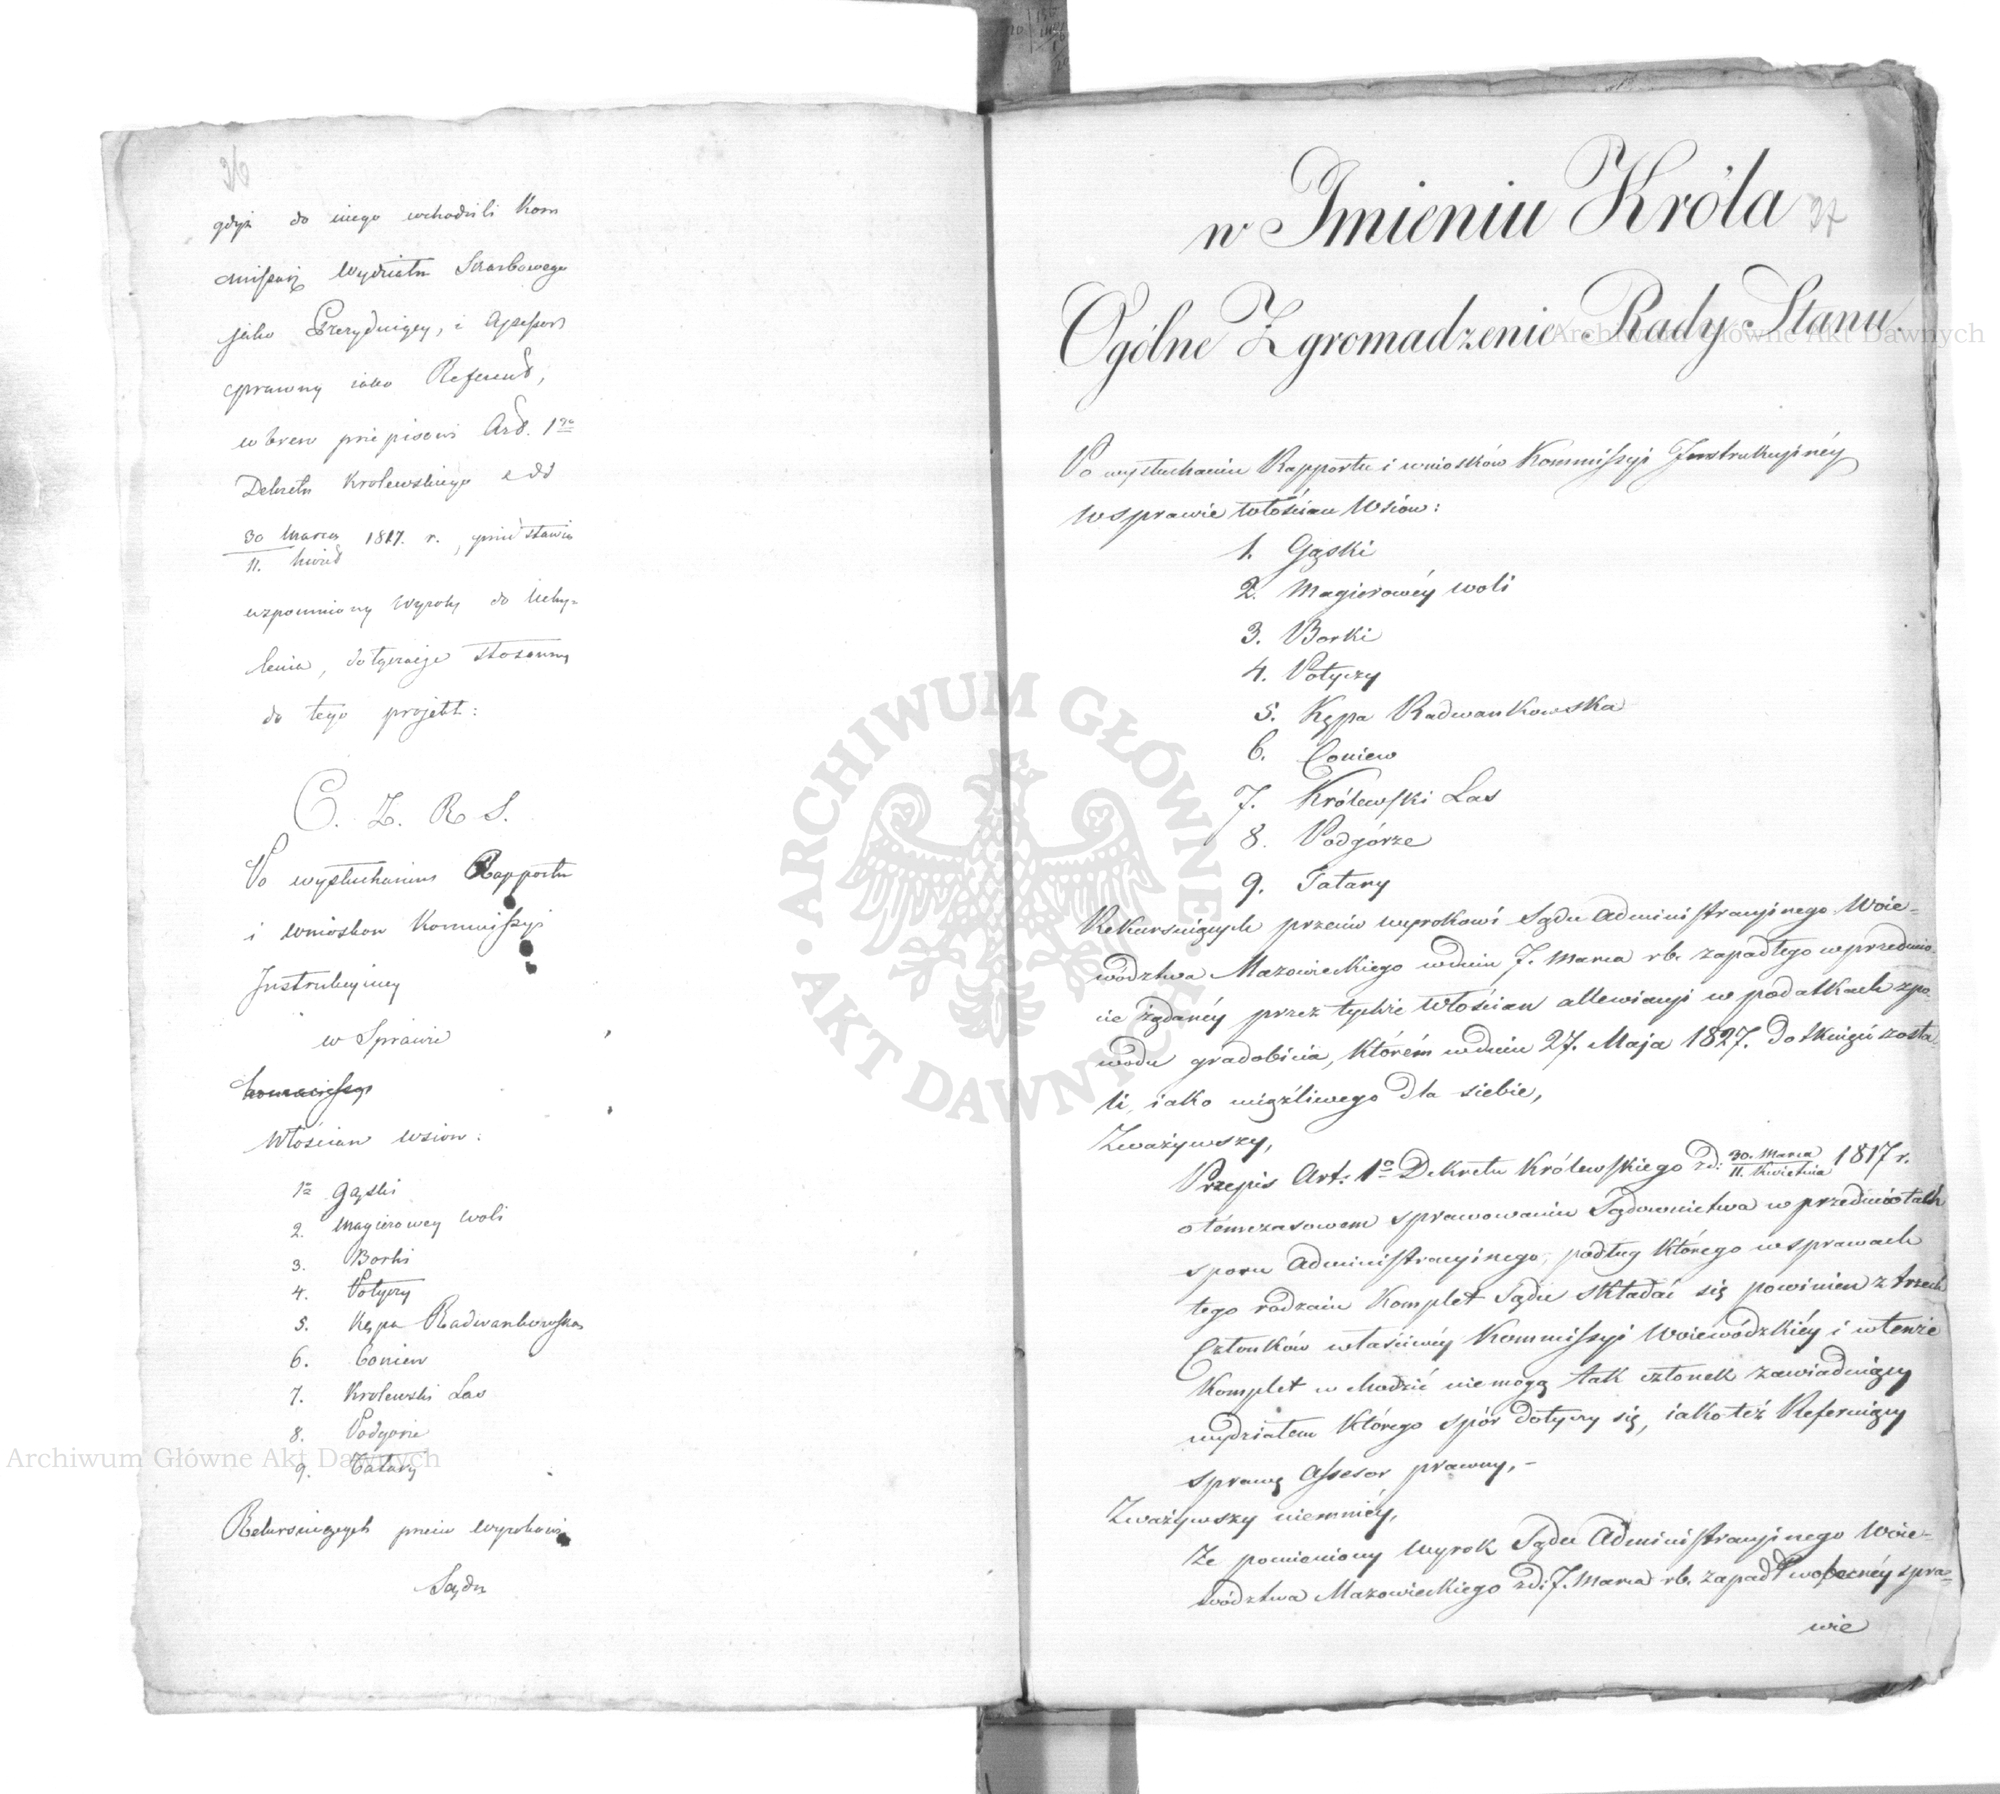 36
gdyż do niego wchodzili Kom
missarz Wydziału Skarbowego
jako Prezyduiący, i Assessor
prawny iako Referend,
wbrew przepisowi Art. 1go
Dekretu Krolewskiego z dd
30 Marca / 11. Kwiet 1817. r., przedstawia
wzpomniony Wyrok do Uchy-
lenia, dołączaiąc stosowny
do tego projekt:
O. Z. R S.
Po wysłuchaniu Rapportu
i wnioskow Kommissyi
Instrukcyiney
w Sprawie
Włościan wsiow:
1o Gąski
2. Magierowey Woli
3. Borki
4. Potyczy
5. Kępa Radwankowska
6. Coniew
7. Krolewski Las
8. Podgorze
9. Tatary
Rekursuiących przeciw Wyrokowi
Sądu
w Imieniu Króla
37
Ogólne Zgromadzenie Rady Stanu.
Po wysłuchaniu Rapportu i wniosków Kommissyi Instrukcyinéy
w sprawie Włościan Wsiow:
1. Gąski
2. Magierowéy woli
3. Borki
4. Potyczy
5. Kępa Radwankowska
6. Coniew
7. Królewski Las
8. Podgórze
9. Tatary
Rekursuiących przeciw wyrokowi Sądu Administracyinego Woie-
wództwa Mazowieckiego w dniu 7. Marca rb. zapadłego w przedmio-
cie żądanéy przez tychże Włościan allewiacyi w podatkach z po-
wodu gradobicia, którém w dniu 27. Maja 1827. dotknięci zosta-
li, iako uciążliwego dla siebie,
Zważywszy,
Przepis Art: 1o Dekretu Królewskiego zd: 30. Marca / 11. Kwietnia 1817 r.
o témczasowem sprawowaniu Sądownictwa w przedmiotach
sporu Administracyinego, podług którego w sprawach
tego rodzaiu Komplet Sądu składać się powinien z trzech
Członków właściwéy Kommissyi Woiewódzkiéy i w tenże
Komplet wchodzić nie mogą tak członek zawiaduiący
wydziałem którego spór dotyczy się, iako też Referuiący
sprawę Assesor prawny,-
Zważywszy niemniéy,
Że pomieniony Wyrok Sądu Administracyinego Woie-
wództwa Mazowieckiego zd: 7. Marca rb. zapadł w obecnéy spra-
wie
Archiwum Główne Akt Dawnych
Archiwum Główne Akt Dawnych
ARCHIWUM GŁÓWNE AKT DAWNYCH